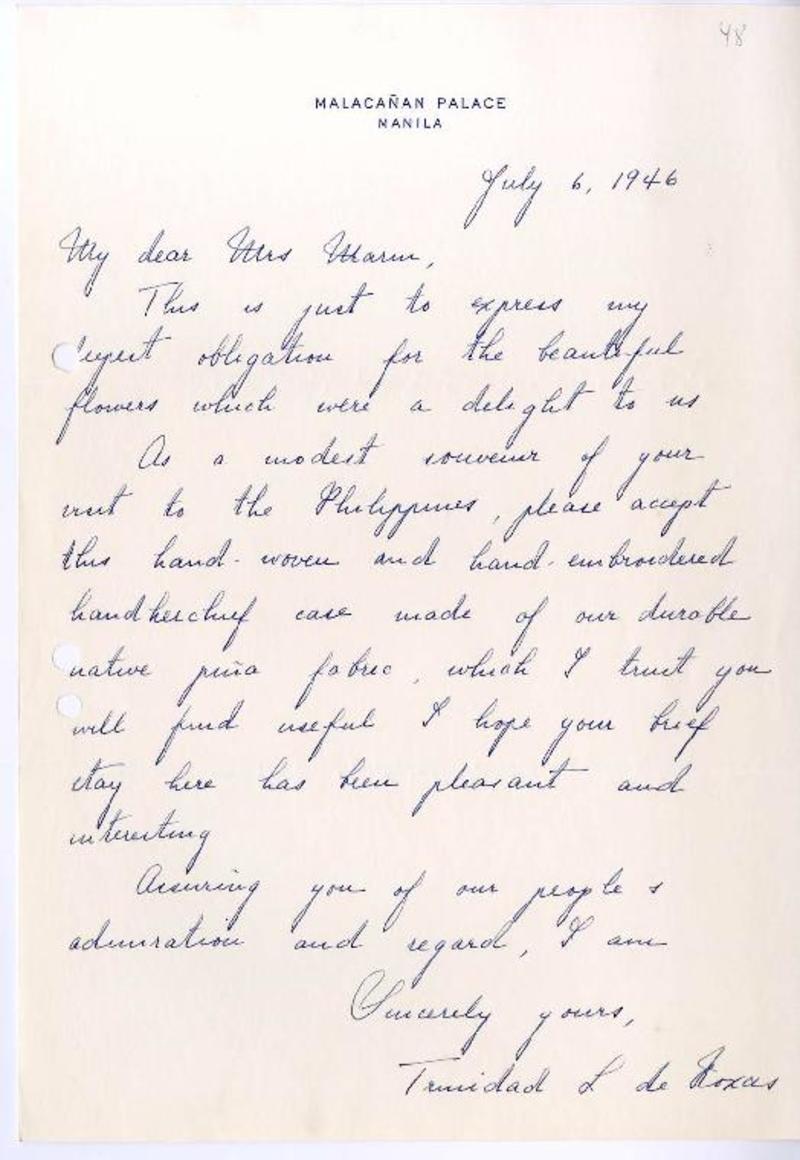 48
MALACAÑAN PALACE
MANILA
July 6, 1946
My dear Mrs Marin,
This is just to express my
deepest obligation for the beautiful
flowers which were a delight to us
As a modest souvenir of your
visit to the Philippines, please accept
this hand-woven and hand-embroidered
handkerchief case made of our durable
native piña fabric, which I trust you
will find useful I hope your brief
stay here has been pleasant and
interesting
Assuring you of our people s
admiration and regard, I am
Sincerely yours,
Trinidad L de Roxas